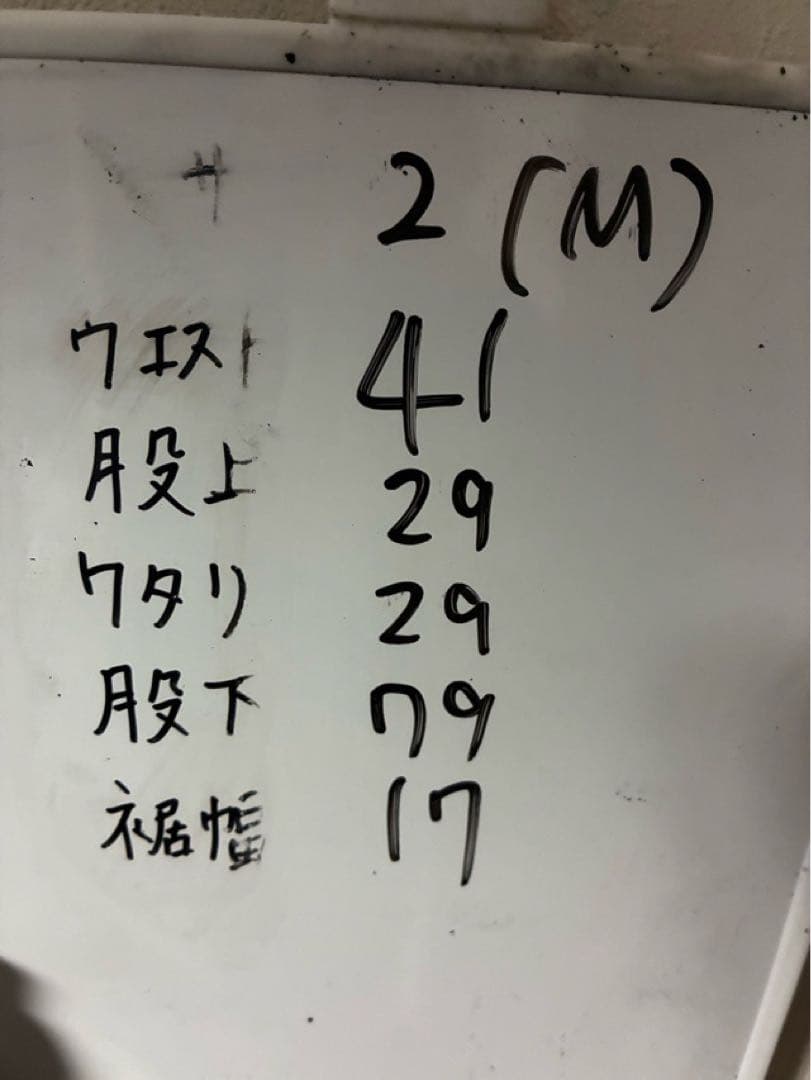 2 (M)
ウエスト 41
股上 29
ワタリ 29
股下 79
裾幅 17